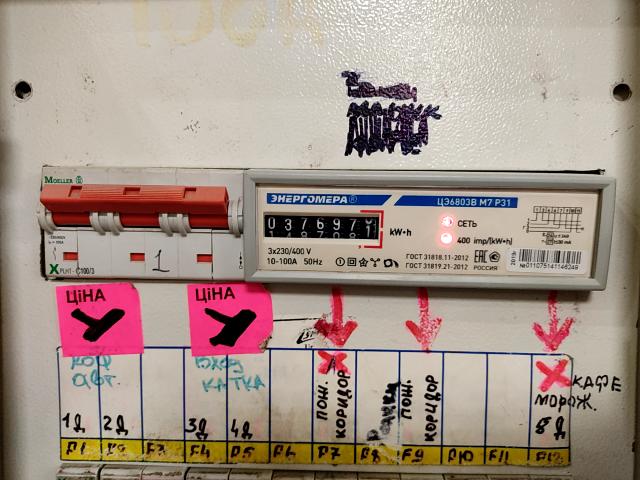 MOELLER
XPLHT-C100/3
1
ЭНЕРГОМЕРА®
ЦЭ6803В М7 Р31
kW•h
СЕТЬ
400 imp/(kW•h)
3x230/400 V
10-100A 50Hz
ГОСТ 31818.11-2012
ГОСТ 31819.21-2012
EAC
РОССИЯ
№011075141146249
ЦіНА
ЦіНА
КОР
АВТ.
КАТКА
ПОЖ.
КОРИДОР
ПОЖ.
КОРИДОР
КАФЕ
МОРОЖ.
1Д 2Д 3Д 4Д
F1 F2 F3 F4 F5 F6 F7 F8 F9 F10 F11 F12